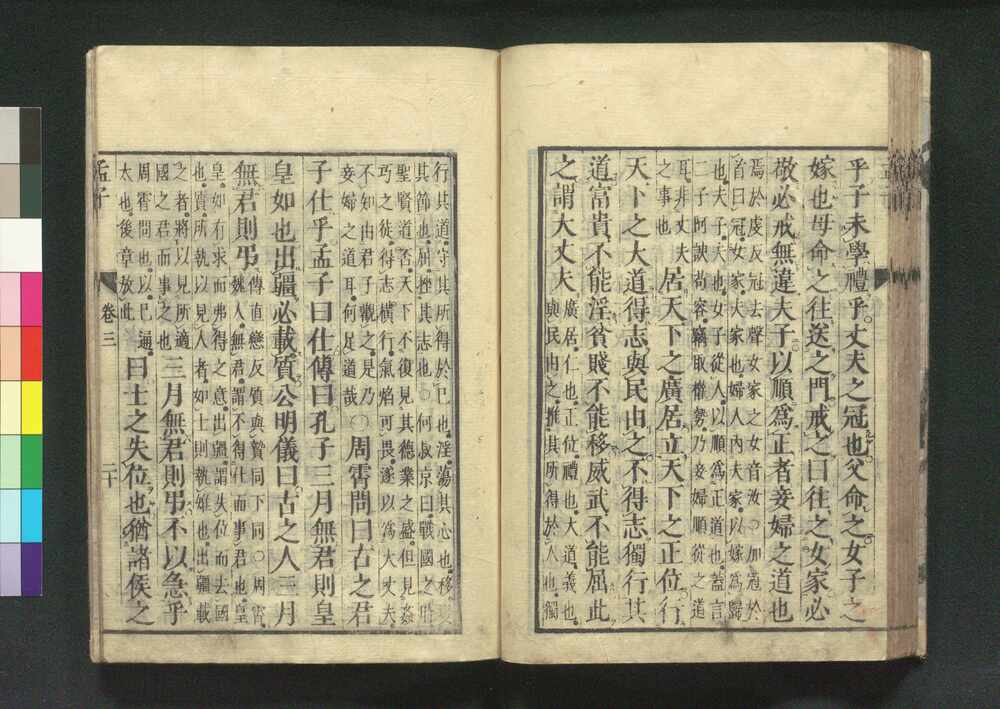 乎子未學禮乎丈夫之冠也父命之女子之
嫁也母命之往送之門戒之曰往之女家必
敬必戒無違夫子以順爲正者妾婦之道也
焉於虔反冠去聲女家之女音汝○加冠於
首曰冠女家夫家也婦人內夫家以嫁爲歸
也夫子夫也女子從人以順爲正道也蓋言
二子阿諛苟容竊取權勢乃妾婦順從之道
耳非丈夫
之事也
居天下之廣居立天下之正位行
天下之大道得志與民由之不得志獨行其
道富貴不能淫貧賤不能移威武不能屈此
之謂大丈夫
廣居仁也正位禮也大道義也
與民由之推其所得於人也獨
行其道守其所得於己也淫蕩其心也移變
其節也屈挫其志也○何叔京曰戰國之時
聖賢道否天下不復見其德業之盛但見姦
巧之徒得志橫行氣焰可畏遂以爲大丈夫
不知由君子觀之是乃
妾婦之道耳何足道哉
○周霄問曰古之君
子仕乎孟子曰仕傳曰孔子三月無君則皇
皇如也出疆必載質公明儀曰古之人三月
無君則弔
傳直戀反質與贄同下同○周霄
魏人無君謂不得仕而事君也皇
皇如有求而弗得之意出疆謂失位而去國
也質所執以見人者如士則執雉也出疆載
之者將以見所適
國之君而事之也
三月無君則弔不以急乎
周霄問也以已通
太也後章放此
曰士之失位也猶諸侯之
孟子
卷三
二十